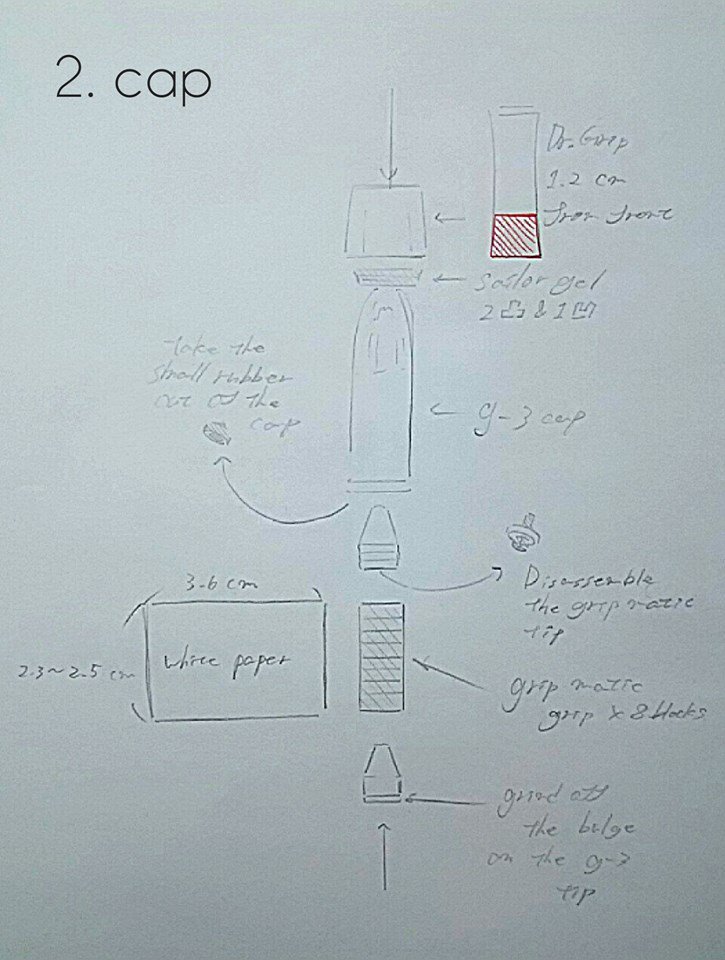 2. cap
Dr. Grip
1.2 cm
from front
sailor gel
2 凸 & 1 凹
take the
small rubber
out of the
cap
g-3 cap
Disassemble
the grip matic
tip
3.6 cm
2.3~2.5 cm
white paper
grip matic
grip x 8 blocks
grind off
the bulge
on the g-3
tip